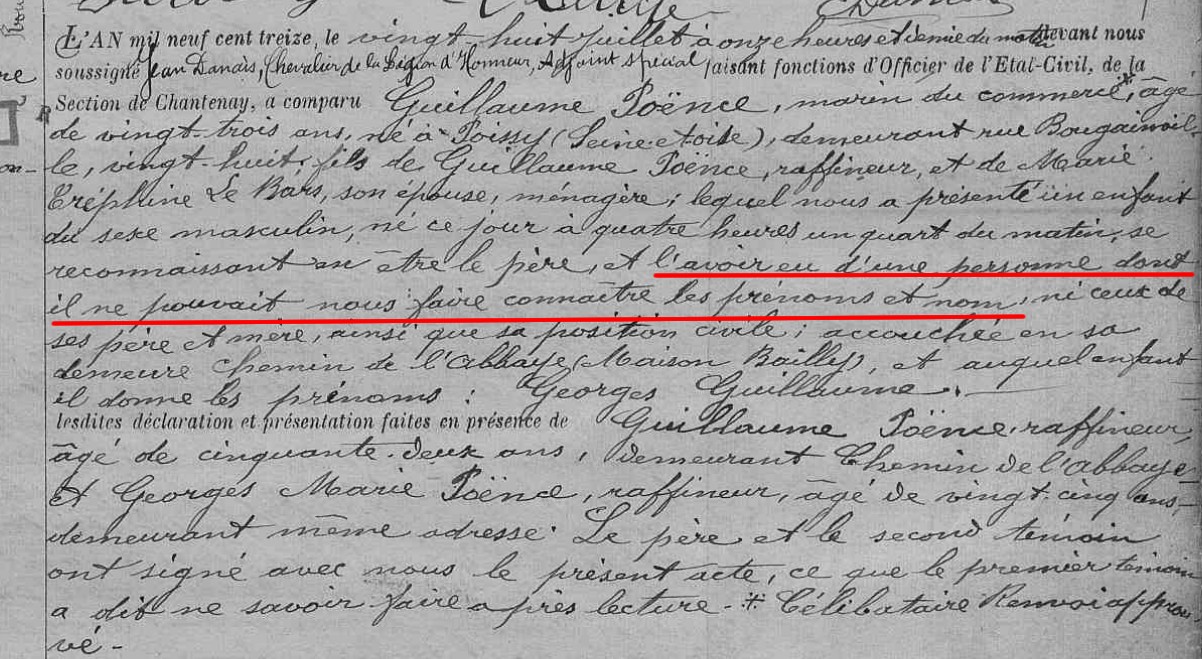 L'AN mil neuf cent treize, le vingt huit Juillet à onze heures et demie du matin devant nous
soussigné Jean Danais, Chevalier de la Légion d'Honneur, Adjoint spécial faisant fonctions d'Officier de l'Etat-Civil, de la
Section de Chantenay, a comparu Guillaume Poënce, marin du commerce*, âgé
de vingt-trois ans, né à Poissy (Seine-et-oise), demeurant rue Bougainvil
le, vingt-huit, fils de Guillaume Poënce, raffineur, et de Marie
Tréphine Le Bars, son épouse, ménagère; lequel nous a présenté un enfant
du sexe masculin, né ce jour à quatre heures un quart du matin, se
reconnaissant en être le père, et l'avoir eu d'une personne dont
il ne pouvait nous faire connaître les prénoms et nom, ni ceux de
ses père et mère, ainsi que sa position civile; accouchée en sa
demeure Chemin de l'Abbaye (Maison Bailly), et auquel enfant
il donne les prénoms : Georges Guillaume.
lesdites déclaration et présentation faites en présence de Guillaume Poënce, raffineur,
âgé de cinquante-deux ans, demeurant Chemin de l'abbaye
et Georges Marie Poënce, raffineur, âgé de vingt-cinq ans,
demeurant même adresse. Le père et le second témoin
ont signé avec nous le présent acte, ce que le premier témoin
a dit ne savoir faire après lecture. * Célibataire Renvoi approu-
vé -